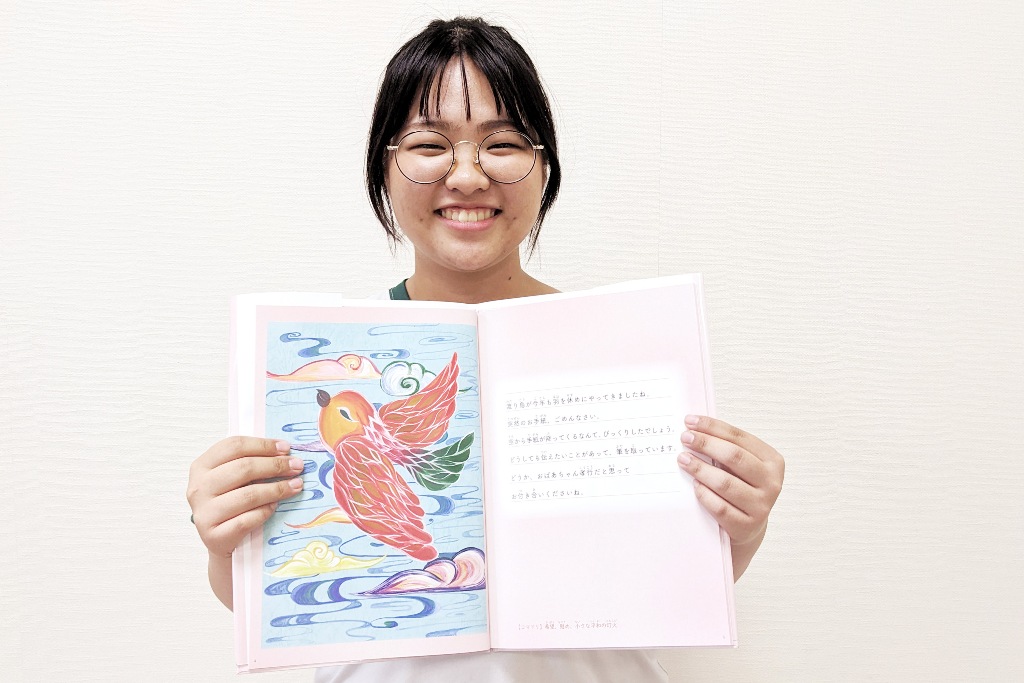 渡り鳥が今年も羽を休めにやってきましたね。
突然のお手紙、ごめんなさい。
空から手紙が降ってくるなんて、びっくりしたでしょう。
どうしても伝えたいことがあって、筆を取っています。
どうか、おばあちゃん孝行だと思って
お付き合いくださいね。
小さな平和の灯火